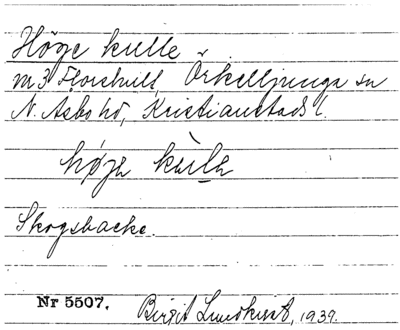 Höge kulle
m 3 Florshult, Örkelljunga sn
N. Åsbo hd, Kristianstads l.
høja kula
Skogsbacke.
Nr 5507. Birgit Lundkvist, 1939.